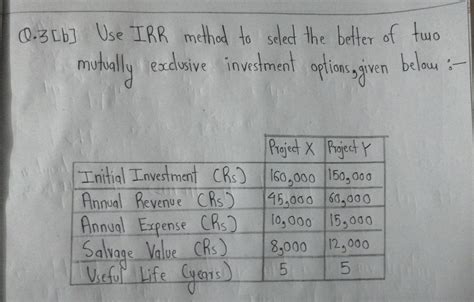 Q.3[b] Use IRR method to select the better of two
mutually exclusive investment options, given below :-
Project X Project Y
Initial Investment (Rs) 160,000 150,000
Annual Revenue (Rs) 45,000 60,000
Annual Expense (Rs) 10,000 15,000
Salvage Value (Rs) 8,000 12,000
Useful Life (years) 5 5